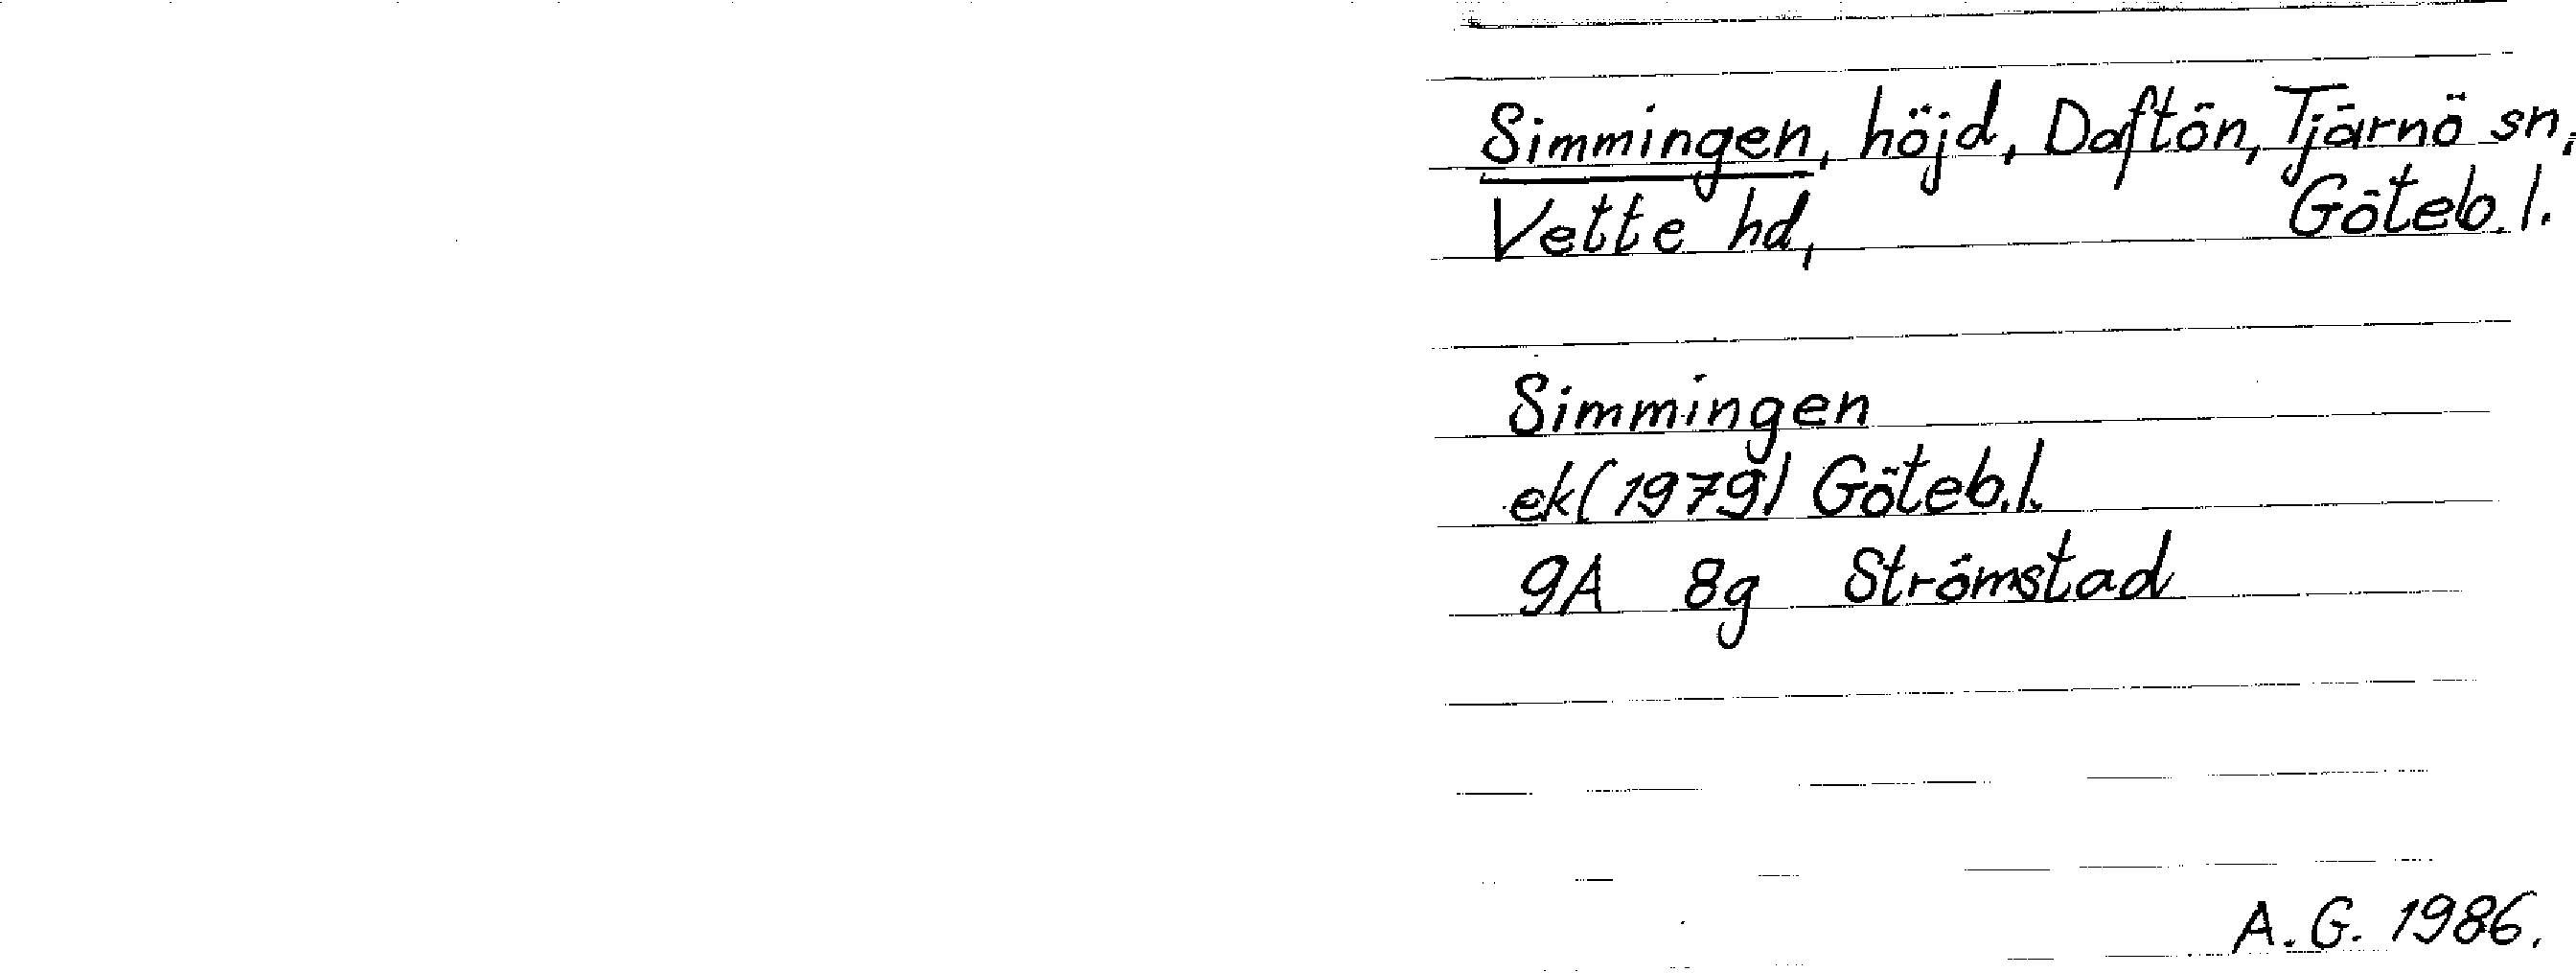 Simmingen, höjd, Daftön, Tjärnö sn,
Vette hd, Göteb. l.
Simmingen
ek (1979) Göteb. l.
9A 8g Strömstad
A. G. 1986.